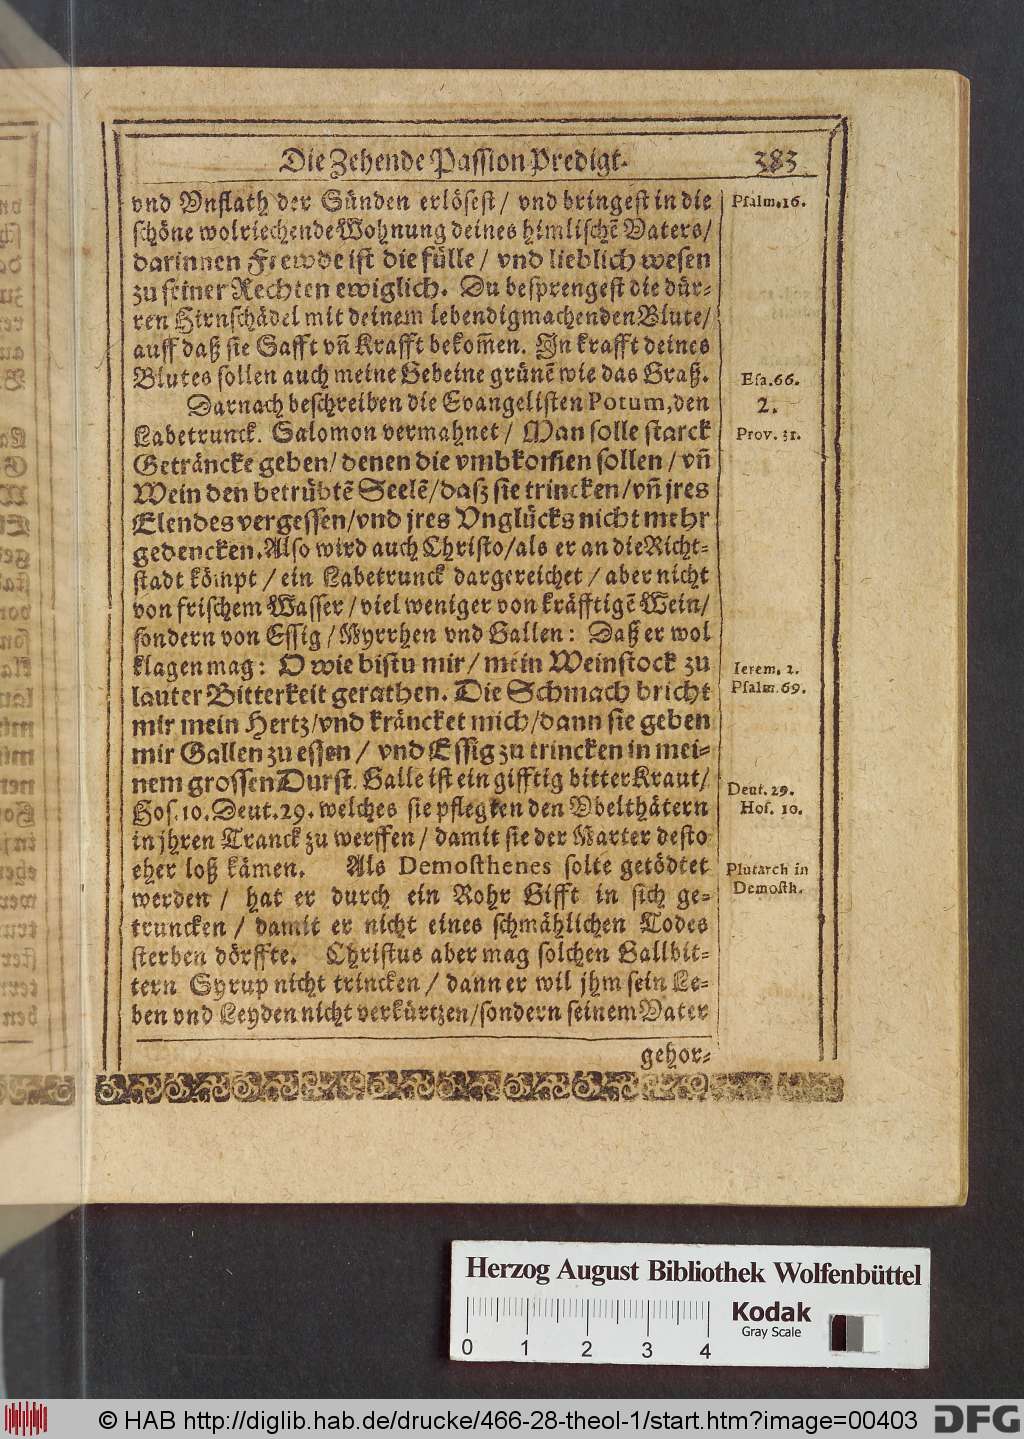 Die Zehende Passion Predigt. 383
vnd Vnflath der Sünden erlösest / vnd bringest in die
schöne wolriechende Wohnung deines himlischẽ Vaters /
darinnen Frewde ist die fülle / vnd lieblich wesen
zu seiner Rechten ewiglich. Du besprengest die dür-
ren Hirnschädel mit deinem lebendigmachenden Blute /
auff daß sie Safft vñ Krafft bekom̃en. In krafft deines
Blutes sollen auch meine Gebeine grünẽ wie das Graß.
Darnach beschreiben die Evangelisten Potum, den
Labetrunck. Salomon vermahnet / Man solle starck
Geträncke geben / denen die vmbkom̃en sollen / vñ
Wein den betrübtẽ Seelẽ / daß sie trincken / vñ jres
Elendes vergessen / vnd jres Vnglücks nicht mehr
gedencken. Also wird auch Christo / als er an die Richt-
stadt kömpt / ein Labetrunck dargereichet / aber nicht
von frischem Wasser / viel weniger von kräfftigẽ Wein /
sondern von Essig / Myrrhen vnd Gallen: Daß er wol
klagen mag: O wie bistu mir / mein Weinstock zu
lauter Bitterkeit gerathen. Die Schmach bricht
mir mein Hertz / vnd kräncket mich / dann sie geben
mir Gallen zu essen / vnd Essig zu trincken in mei-
nem grossen Durst. Galle ist ein gifftig bitter Kraut /
Hos. 10. Deut. 29. welches sie pflegten den Vbelthätern
in jhren Tranck zu werffen / damit sie der Marter desto
eher loß kämen. Als Demosthenes solte getödtet
werden / hat er durch ein Rohr Gifft in sich ge-
truncken / damit er nicht eines schmählichen Todes
sterben dörffte. Christus aber mag solchen Gallbit-
tern Syrup nicht trincken / dann er wil jhm sein Le-
ben vnd Leyden nicht verkürtzen / sondern seinem Vater
gehor-
Psalm. 16.
Esa. 66.
2.
Prov. 31.
Ierem. 2.
Psalm. 69.
Deut. 29.
Hos. 10.
Plutarch in
Demosth.
Herzog August Bibliothek Wolfenbüttel
Kodak
Gray Scale
0 1 2 3 4
© HAB http://diglib.hab.de/drucke/466-28-theol-1/start.htm?image=00403
DFG